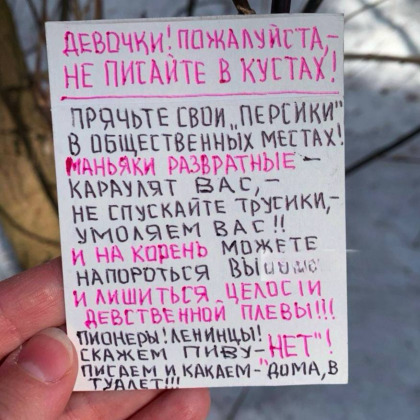 ДЕВОЧКИ! ПОЖАЛУЙСТА,–
НЕ ПИСАЙТЕ В КУСТАХ!
ПРЯЧЬТЕ СВОИ „ПЕРСИКИ"
В ОБЩЕСТВЕННЫХ МЕСТАХ!
МАНЬЯКИ РАЗВРАТНЫЕ –
КАРАУЛЯТ ВАС,–
НЕ СПУСКАЙТЕ ТРУСИКИ,–
УМОЛЯЕМ ВАС!!
И НА КОРЕНЬ МОЖЕТЕ
НАПОРОТЬСЯ
И ЛИШИТЬСЯ ЦЕЛОСТИ
ДЕВСТВЕННОЙ ПЛЕВЫ!!!
ПИОНЕРЫ! ЛЕНИНЦЫ!
СКАЖЕМ ПИВУ–„НЕТ"!
ПИСАЕМ И КАКАЕМ–ДОМА, В
ТУАЛЕТ!!!